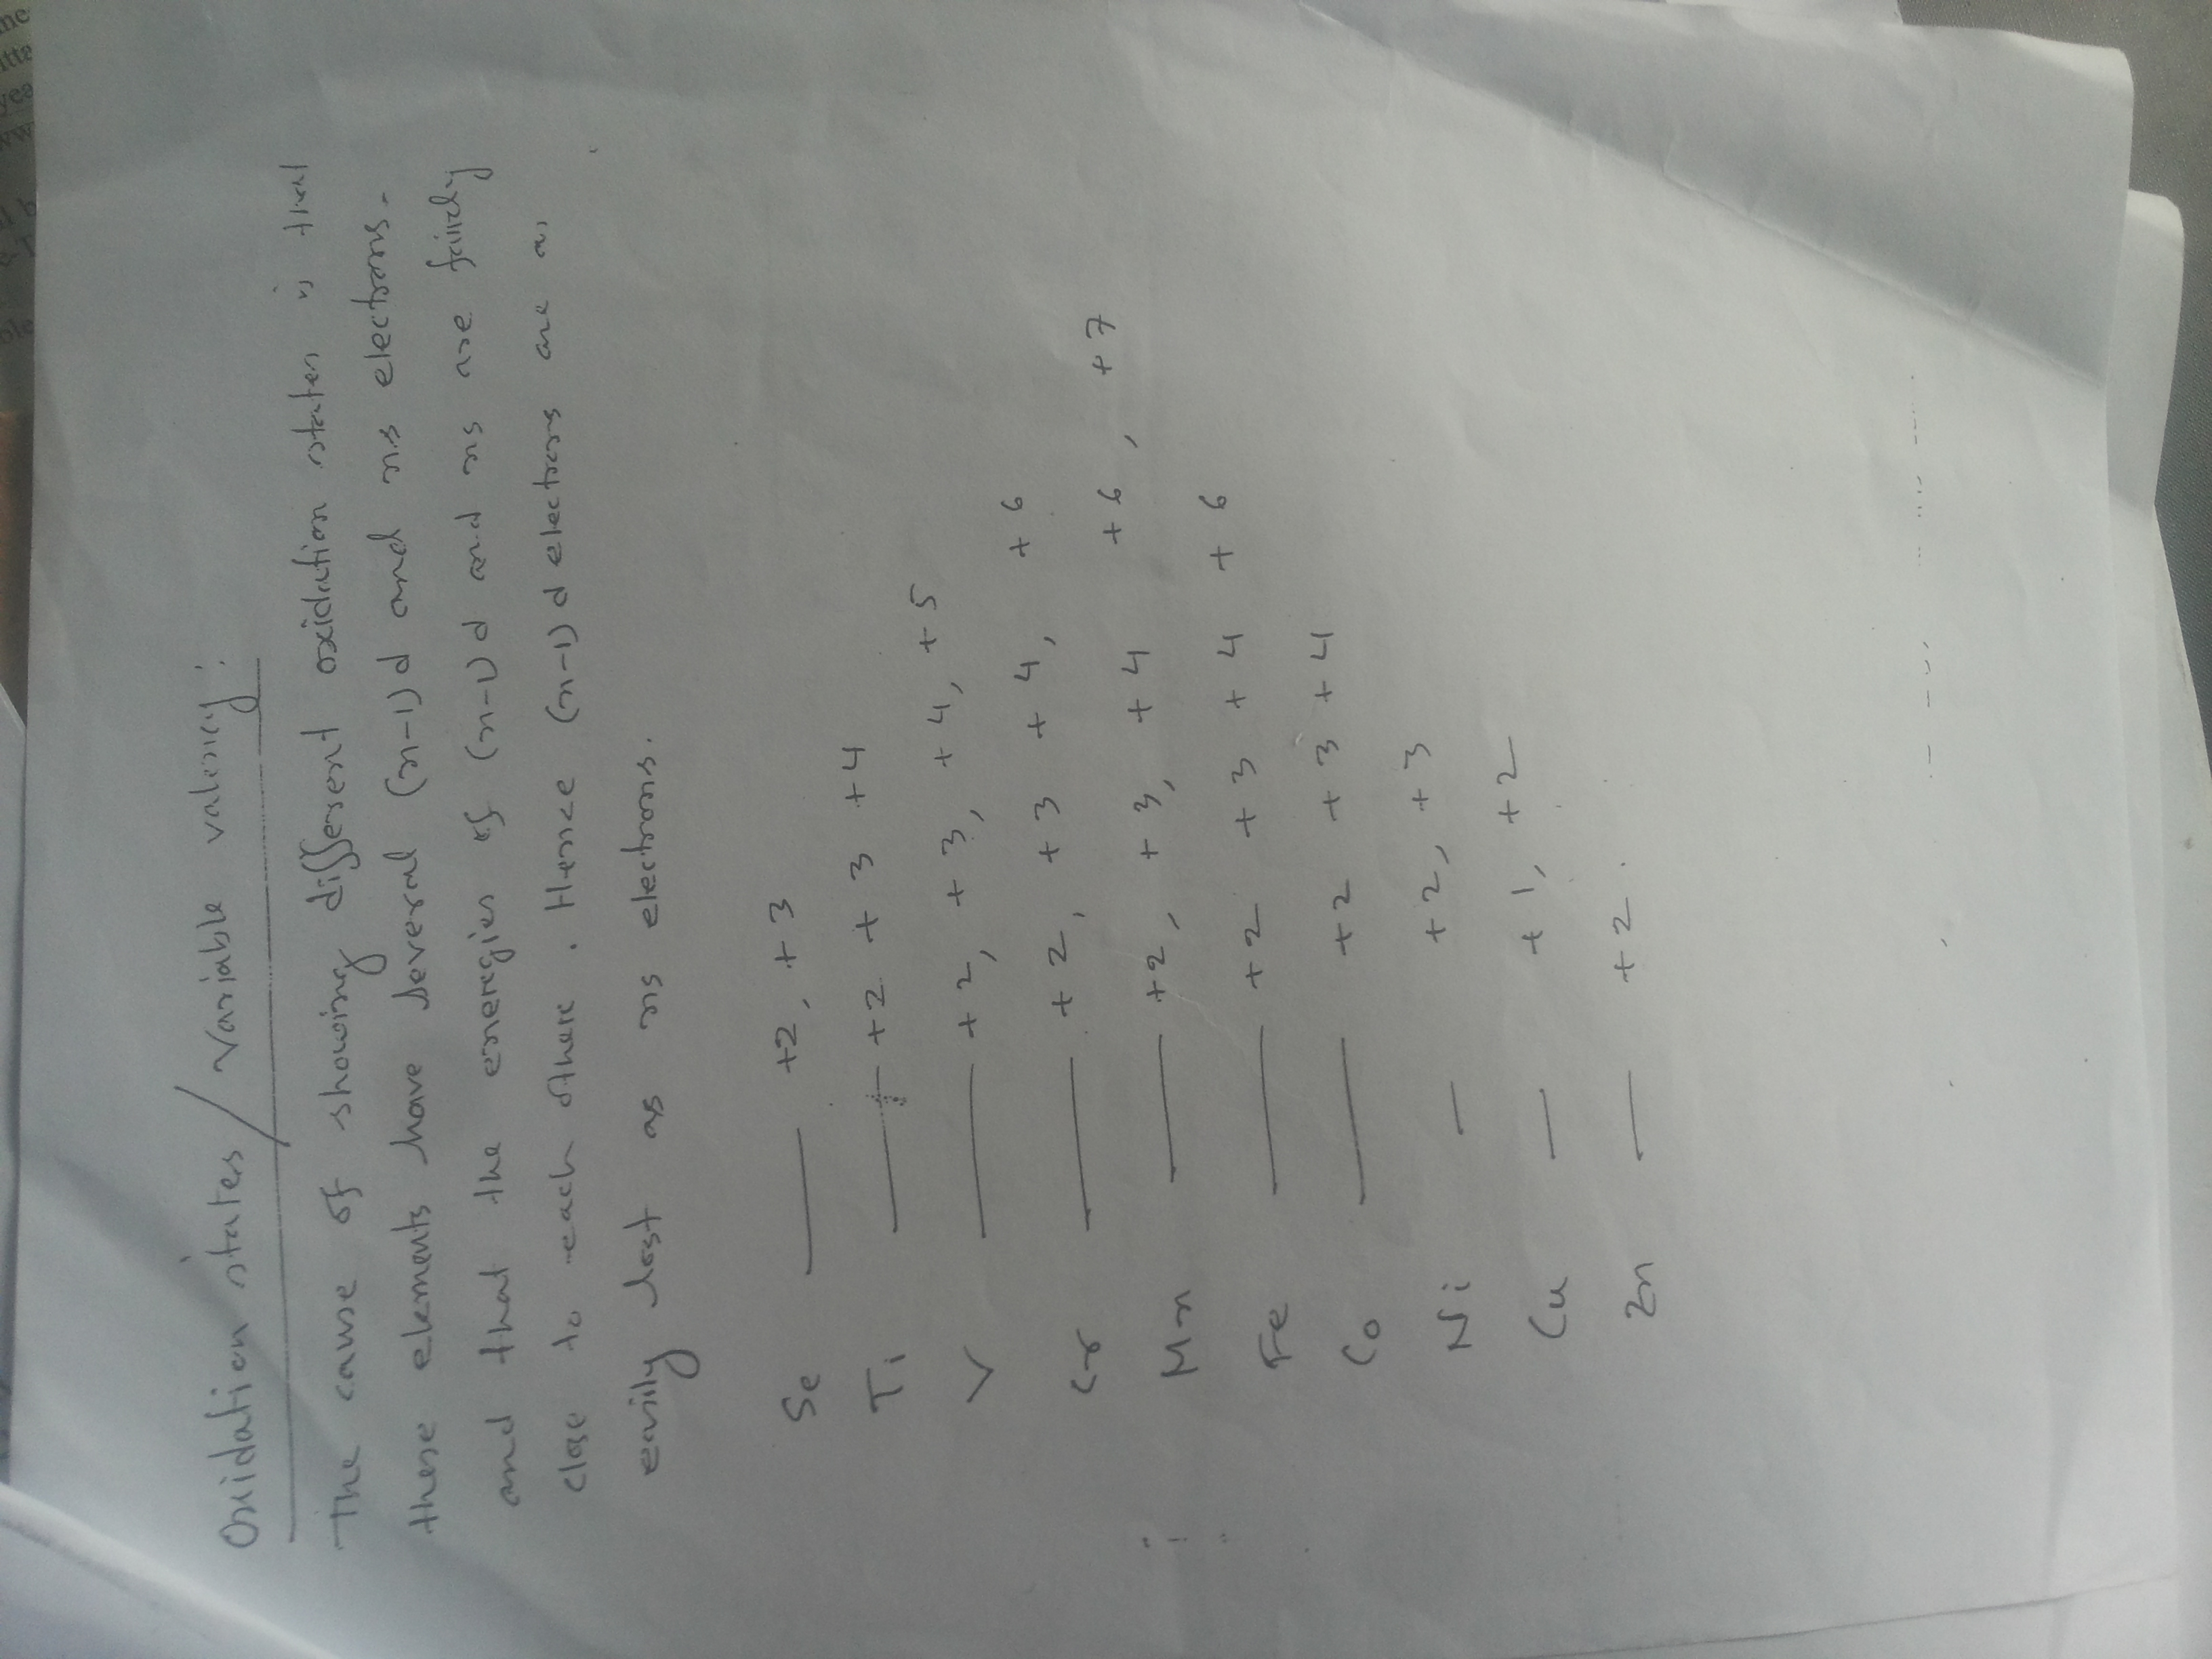 Oxidation states / Variable valency:
The cause of showing different oxidation states is that
these elements have several (n-1)d and ns electrons.
and that the eneregies of (n-1)d and ns are fairely
close to each othere. Hence (n-1)d electrons are as
easily lost as ns electrons.
Se — +2, +3
Ti — +2 +3 +4
V — +2, +3, +4, +5
Cr — +2, +3 +4, +6
Mn — +2, +3, +4 +6, +7
Fe — +2 +3 +4 +6
Co — +2 +3 +4
Ni — +2, +3
Cu — +1, +2
Zn — +2.